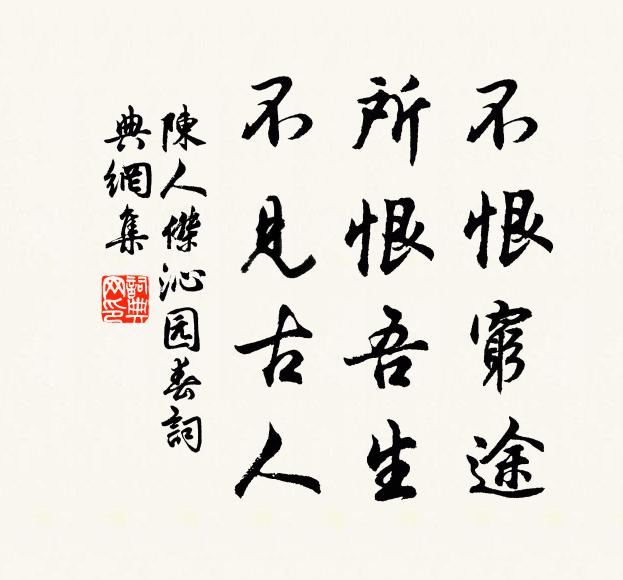 不恨窮途
所恨吾生
不見古人
陳人傑沁园春詞
典網集
詞典网印